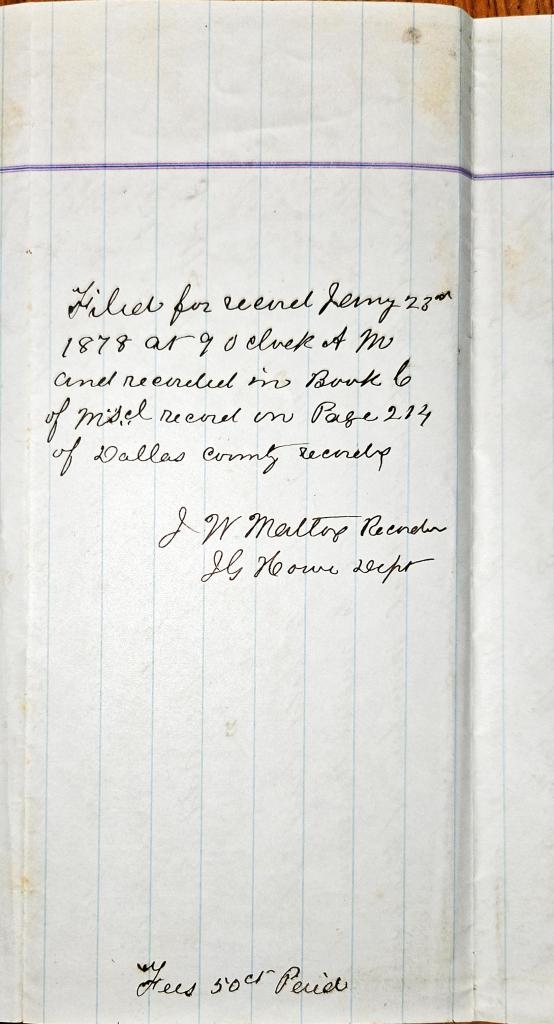 Filed for record Jany 23rd
1878 at 9 O clock A M
and recorded in Book 6
of Miscl record on Page 214
of Dallas county records
J W Mattox Recorder
J G Howe Dept
Fees 50cts Paid